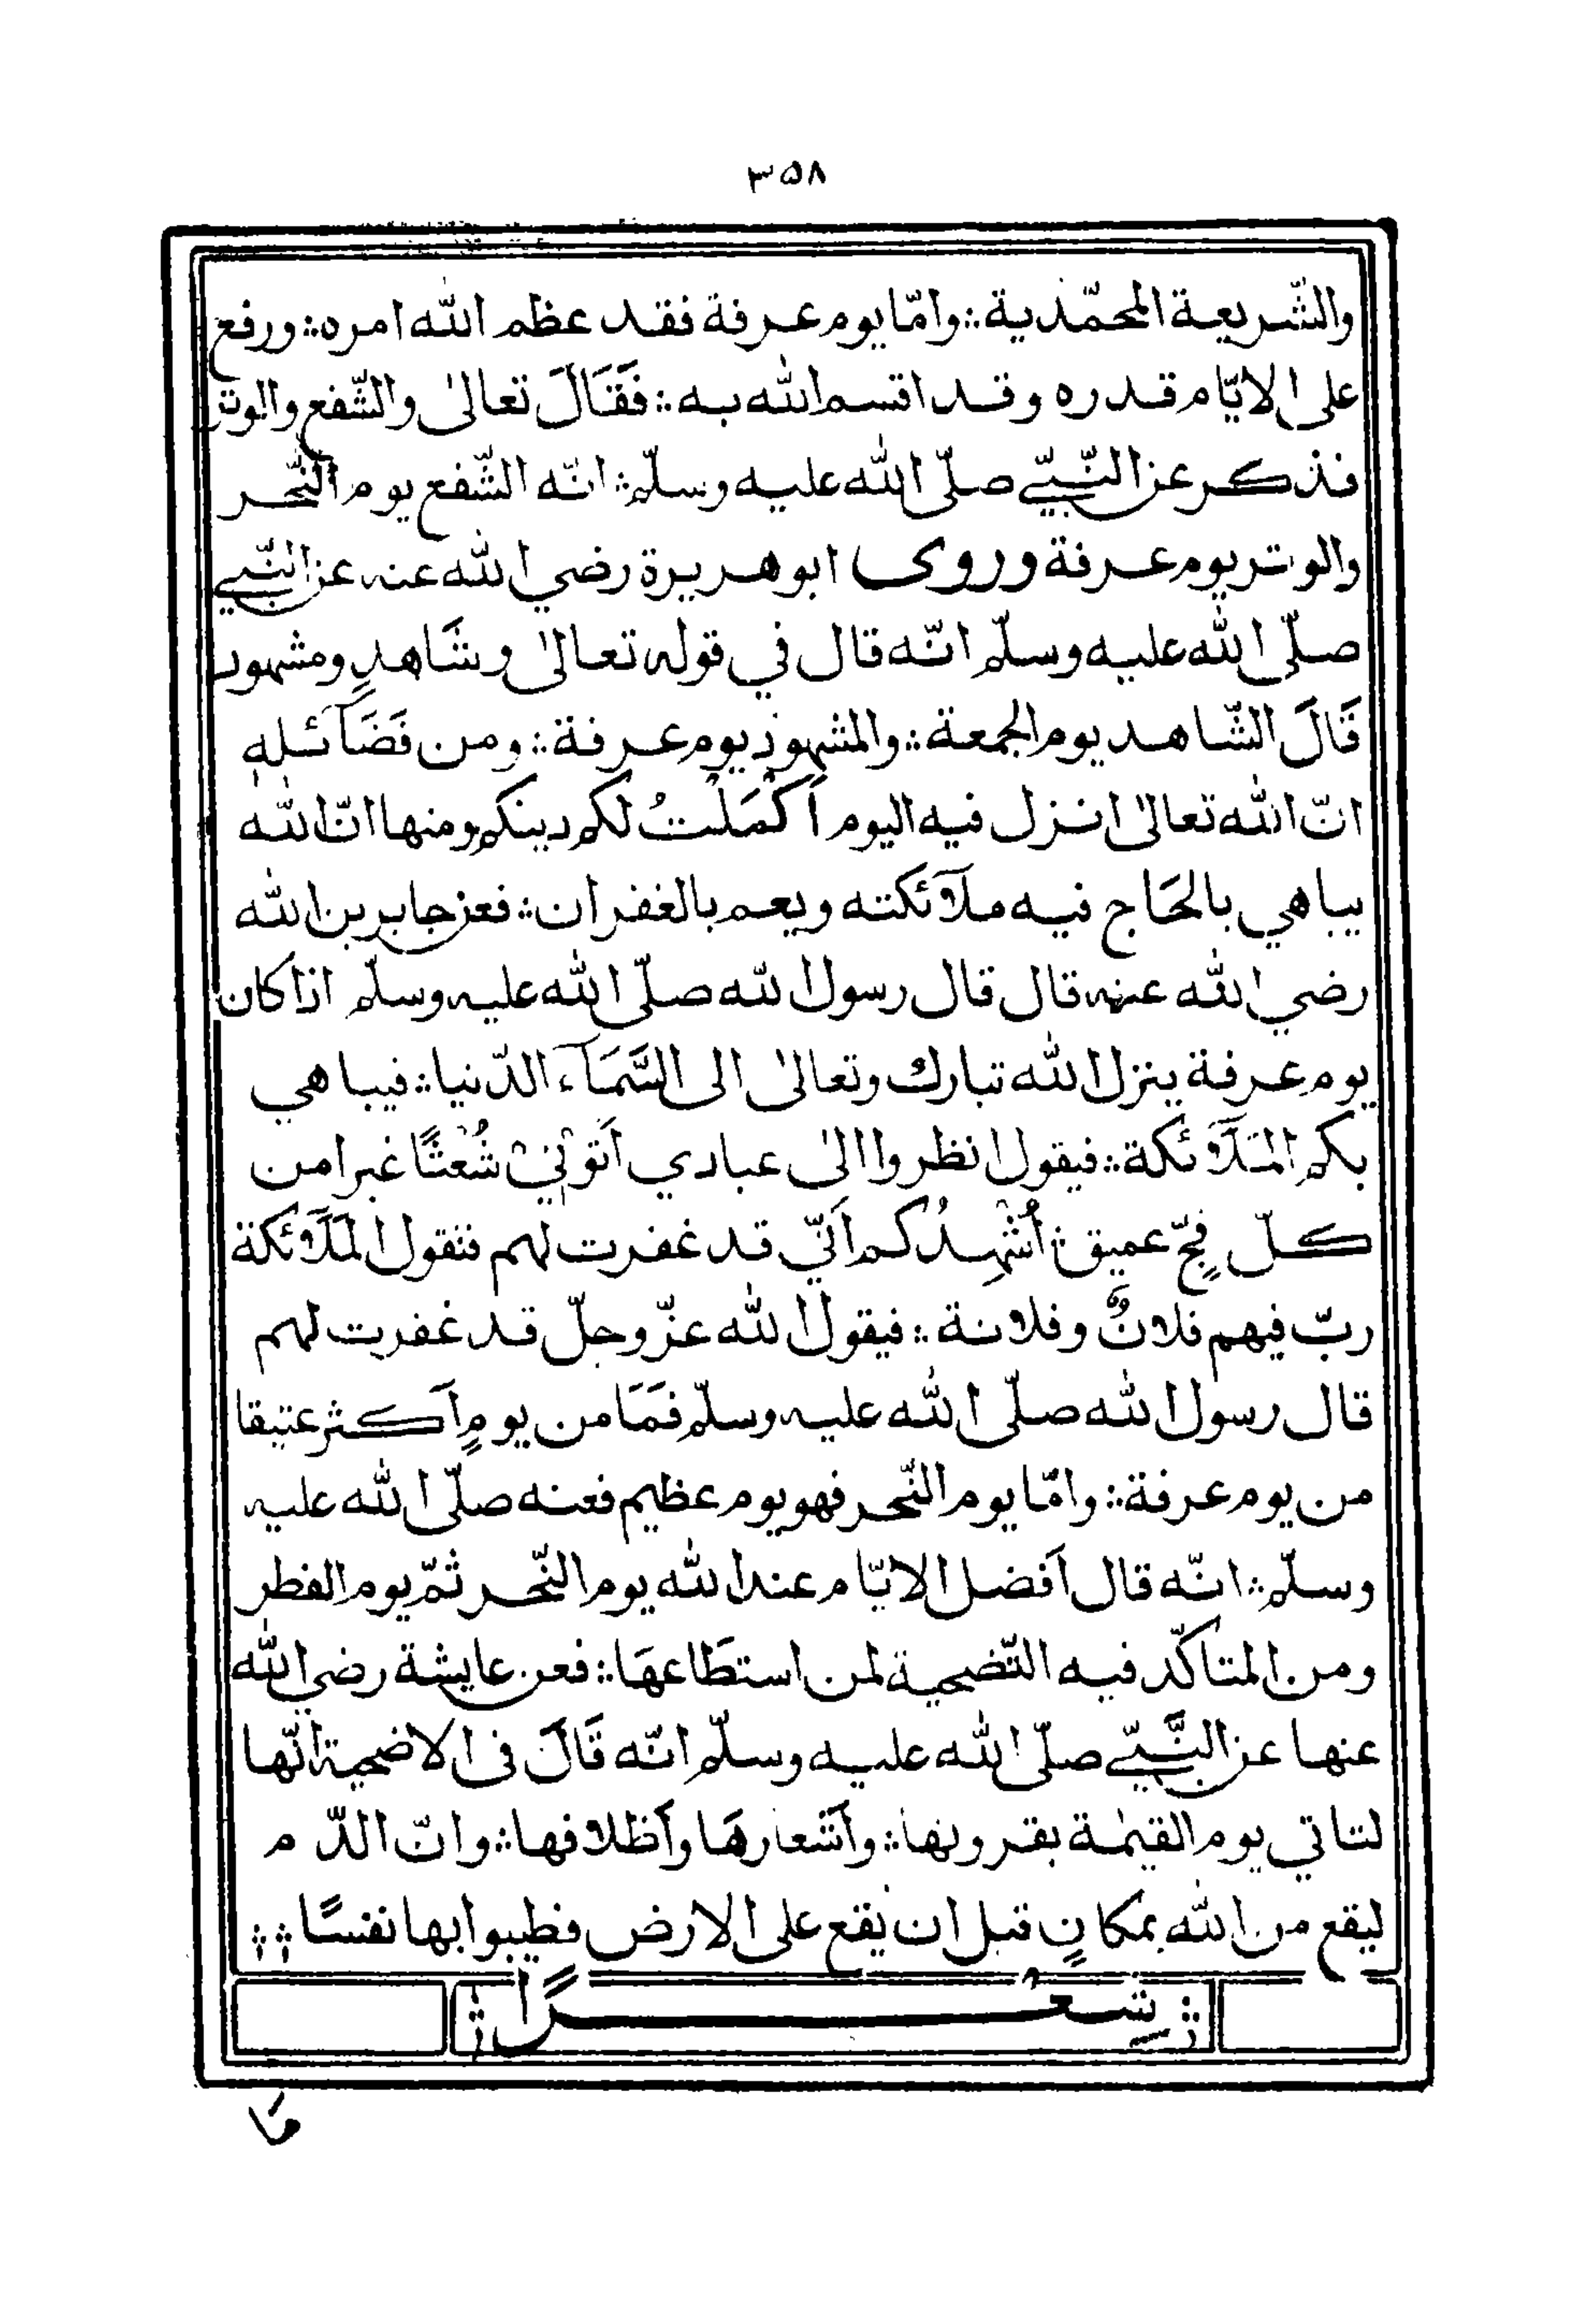 ٣٥٨
والشّريعة المحمّدية ؞ وامّا يوم عرفة فقد عظم الله امره ؞ ورفع
على الايّام قدره وقد اقسم الله به ؞ فَقَالَ تعالىٰ والشّفع والوتر
فذكر عن النّبيّ صلّى الله عليه وسلّم ؞ انّه الشّفع يوم النّحر
والوتر يوم عرفة وروى ابو هريرة رضي الله عنه عن النّبي
صلّى الله عليه وسلّم انّه قال في قوله تعالىٰ وشَاهدٍ ومشهود
قَالَ الشّاهد يوم الجمعة ؞ والمشهود يوم عرفة ؞ ومن فَضَآئله
انّ الله تعالىٰ انزل فيه اليوم اَكْمَلْتُ لكم دينكم ومنها انّ الله
يباهي بالحَاج فيه ملآئكته ويعم بالغفران ؞ فعن جابر بن الله
رضي الله عنه قال قال رسول الله صلّى الله عليه وسلّم اذا كان
يوم عرفة ينزل الله تبارك وتعالىٰ الى السَّمَآء الدّنيا ؞ فيباهي
بكم المَلآئكة ؞ فيقول انظروا الىٰ عبادي اَتَوْنِيْ شُعْثًا غبرا من
كلّ فجٍّ عميق ؞ اُشْهِدُكم اَنّي قد غفرت لهم فتقول المَلَآئكة
ربّ فيهم فلانٌ وفلانة ؞ فيقول الله عزّ وجلّ قد غفرت لهم
قال رسول الله صلّى الله عليه وسلّم فمَا من يومٍ اَكثر عتيقا
من يوم عرفة ؞ وامّا يوم النّحر فهو يوم عظيم فعنه صلّى الله عليه
وسلّم ؞ انّه قال اَفضل الايّام عند الله يوم النّحر ثمّ يوم الفطر
ومن المتاكّد فيه التّضحية لمن استطَاعهَا ؞ فعن عايشة رضي الله
عنها عن النَّبيّ صلّى الله عليه وسلّم انّه قَالَ فى الاضحية انّها
لتاتي يوم القيٰمة بقرونها ؞ وأشعارهَا وأظلافها ؞ وانّ الدّم
ليقع من الله بمكانٍ قبل ان يقع على الارض فطيبوا بها نفسًا ؞ ؞
؞ شِعْـرًا ؞
مَا